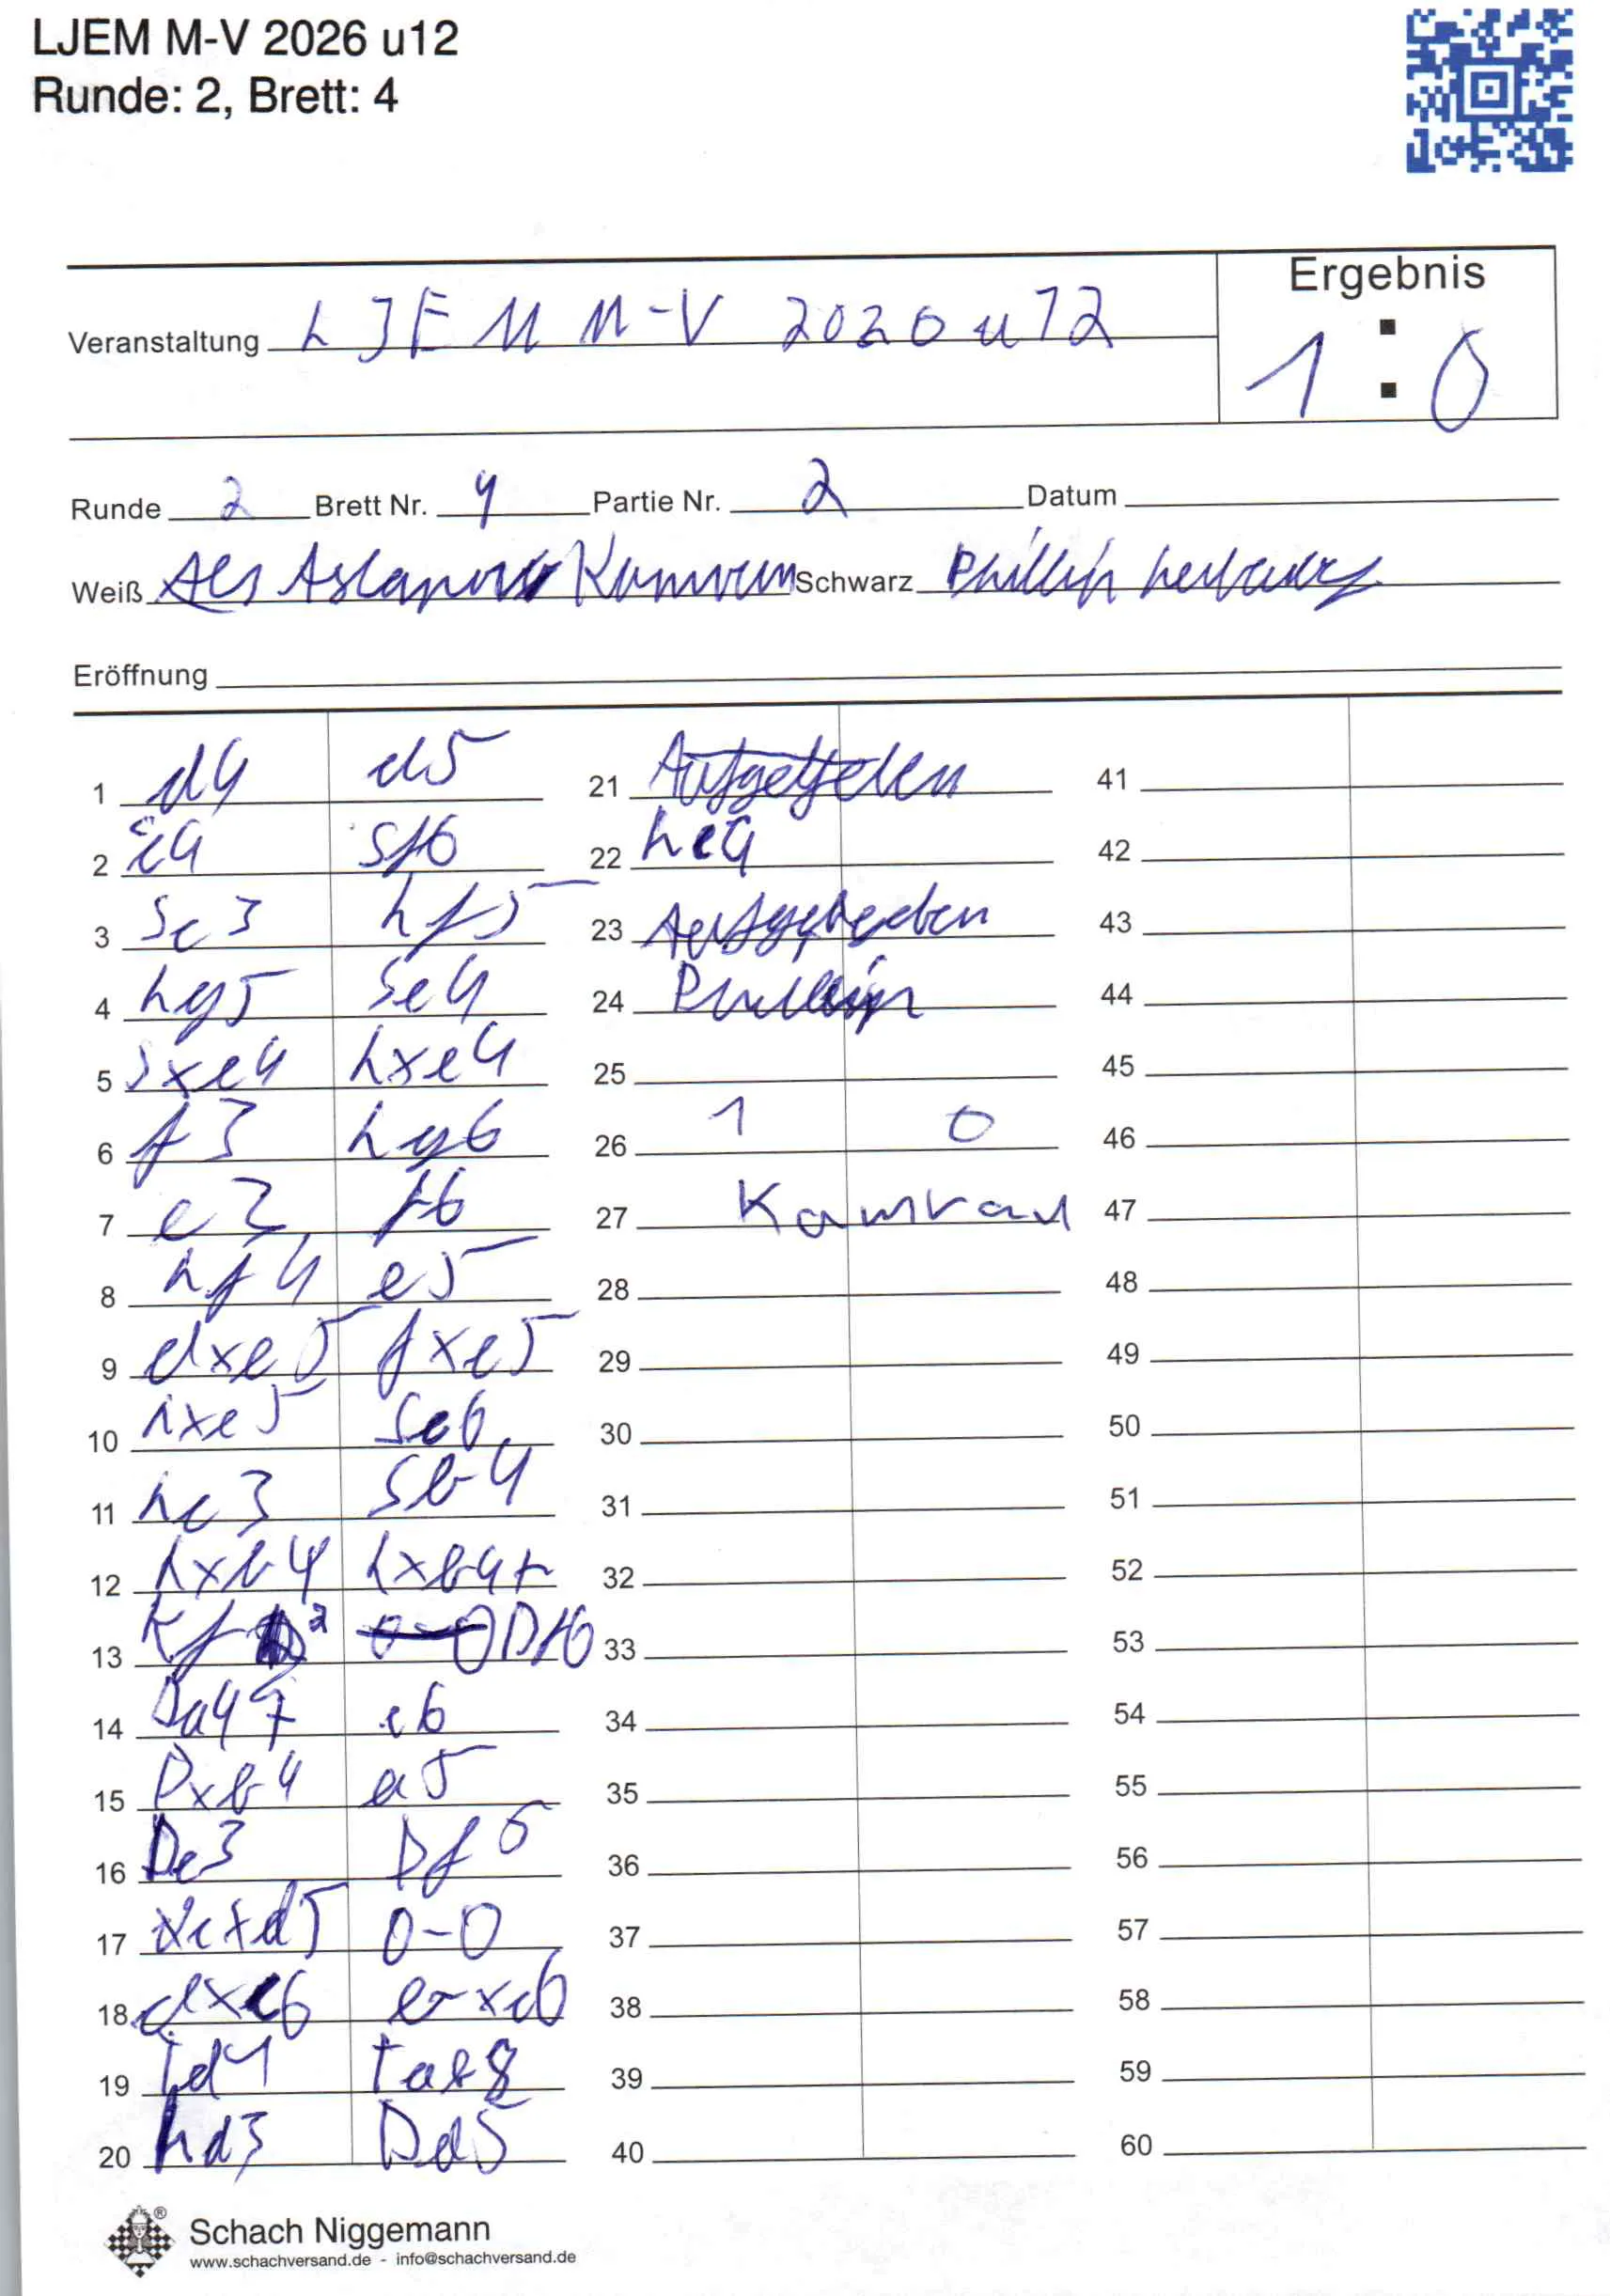 LJEM M-V 2026 u12
Runde: 2, Brett: 4
Ergebnis
Veranstaltung LJEM M-V 2020 u12
1 : 0
Runde 2 Brett Nr. 4 Partie Nr. 2 Datum
Weiß Kamran Schwarz Phillip
Eröffnung
1 d4 d5
2 c4 Sf6
3 Sc3 Lf5
4 Lg5 Se4
5 Sxe4 Lxe4
6 f3 Lg6
7 e3 f6
8 Lf4 e5
9 dxe5 fxe5
10 Lxe5 Sc6
11 Lc3 Sb4
12 Lxb4 Lxb4+
13 Kf2 Df6
14 Da4+ c6
15 Dxb4 a5
16 Dc3 Df6
17 cxd5 0-0
18 dxc6 bxc6
19 Td1 Tae8
20 Ld3 Dd5
21
22 Lc4
23 Aufgegeben
24 Phillip
25
26 1 0
27 Kamran
28
29
30
31
32
33
34
35
36
37
38
39
40
41
42
43
44
45
46
47
48
49
50
51
52
53
54
55
56
57
58
59
60
Schach Niggemann
www.schachversand.de - info@schachversand.de